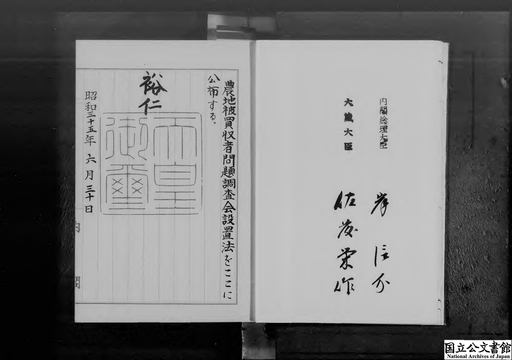 農地被買収者問題調査会設置法をここに
公布する。
裕仁
天皇御璽
昭和三十五年六月三十日
内閣
内閣総理大臣 岸信介
大蔵大臣 佐藤栄作
国立公文書館
National Archives of Japan